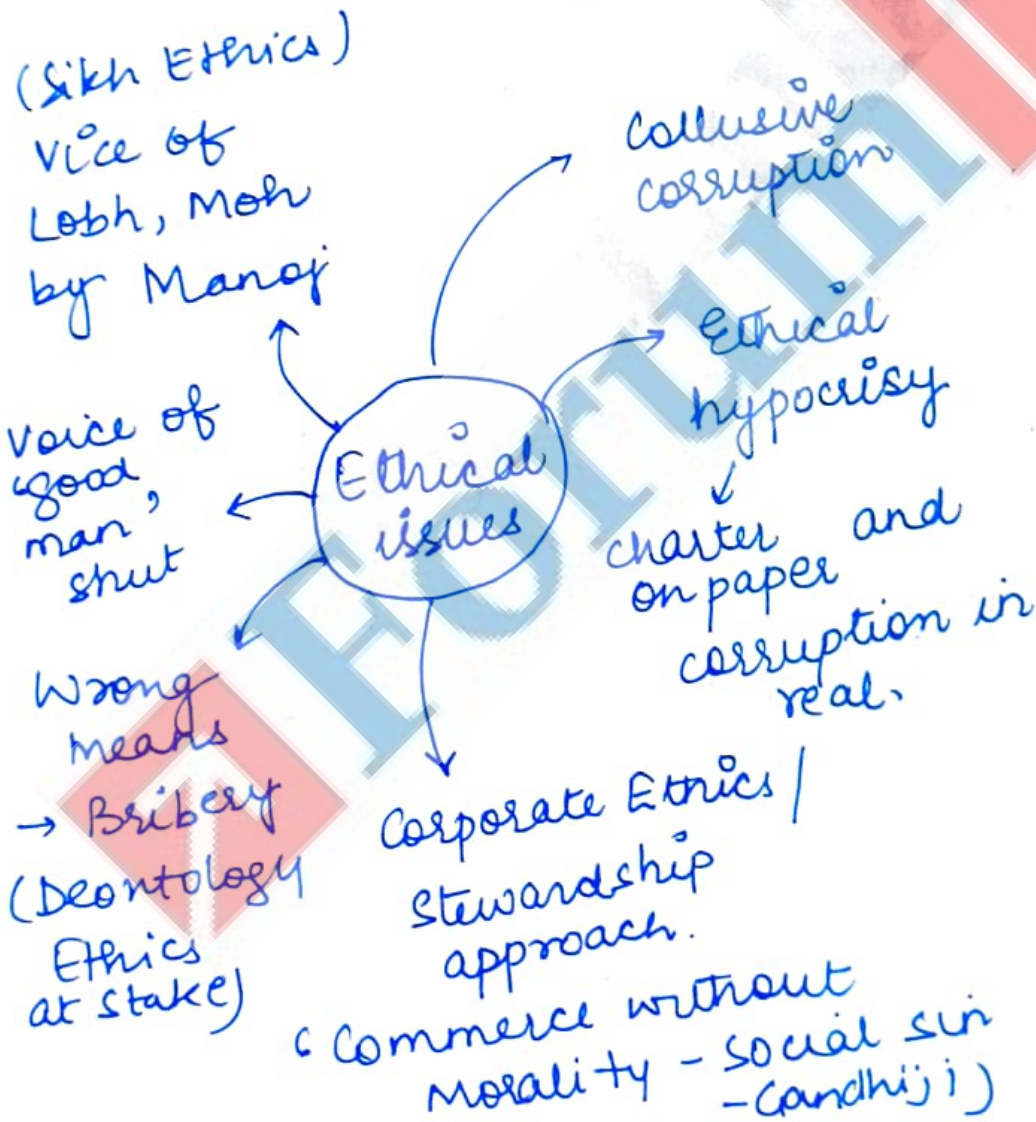 (Sikh Ethics)
Vice of
Lobh, Moh
by Manoj
Collusive
corruption
Ethical
hypocrisy
charter and
on paper
corruption in
real.
Ethical
issues
Voice of
'good
man'
shut
Wrong
means
→ Bribery
(Deontology
Ethics
at stake)
Corporate Ethics/
Stewardship
approach.
'Commerce without
Morality - social sin
- Gandhiji)
Forum